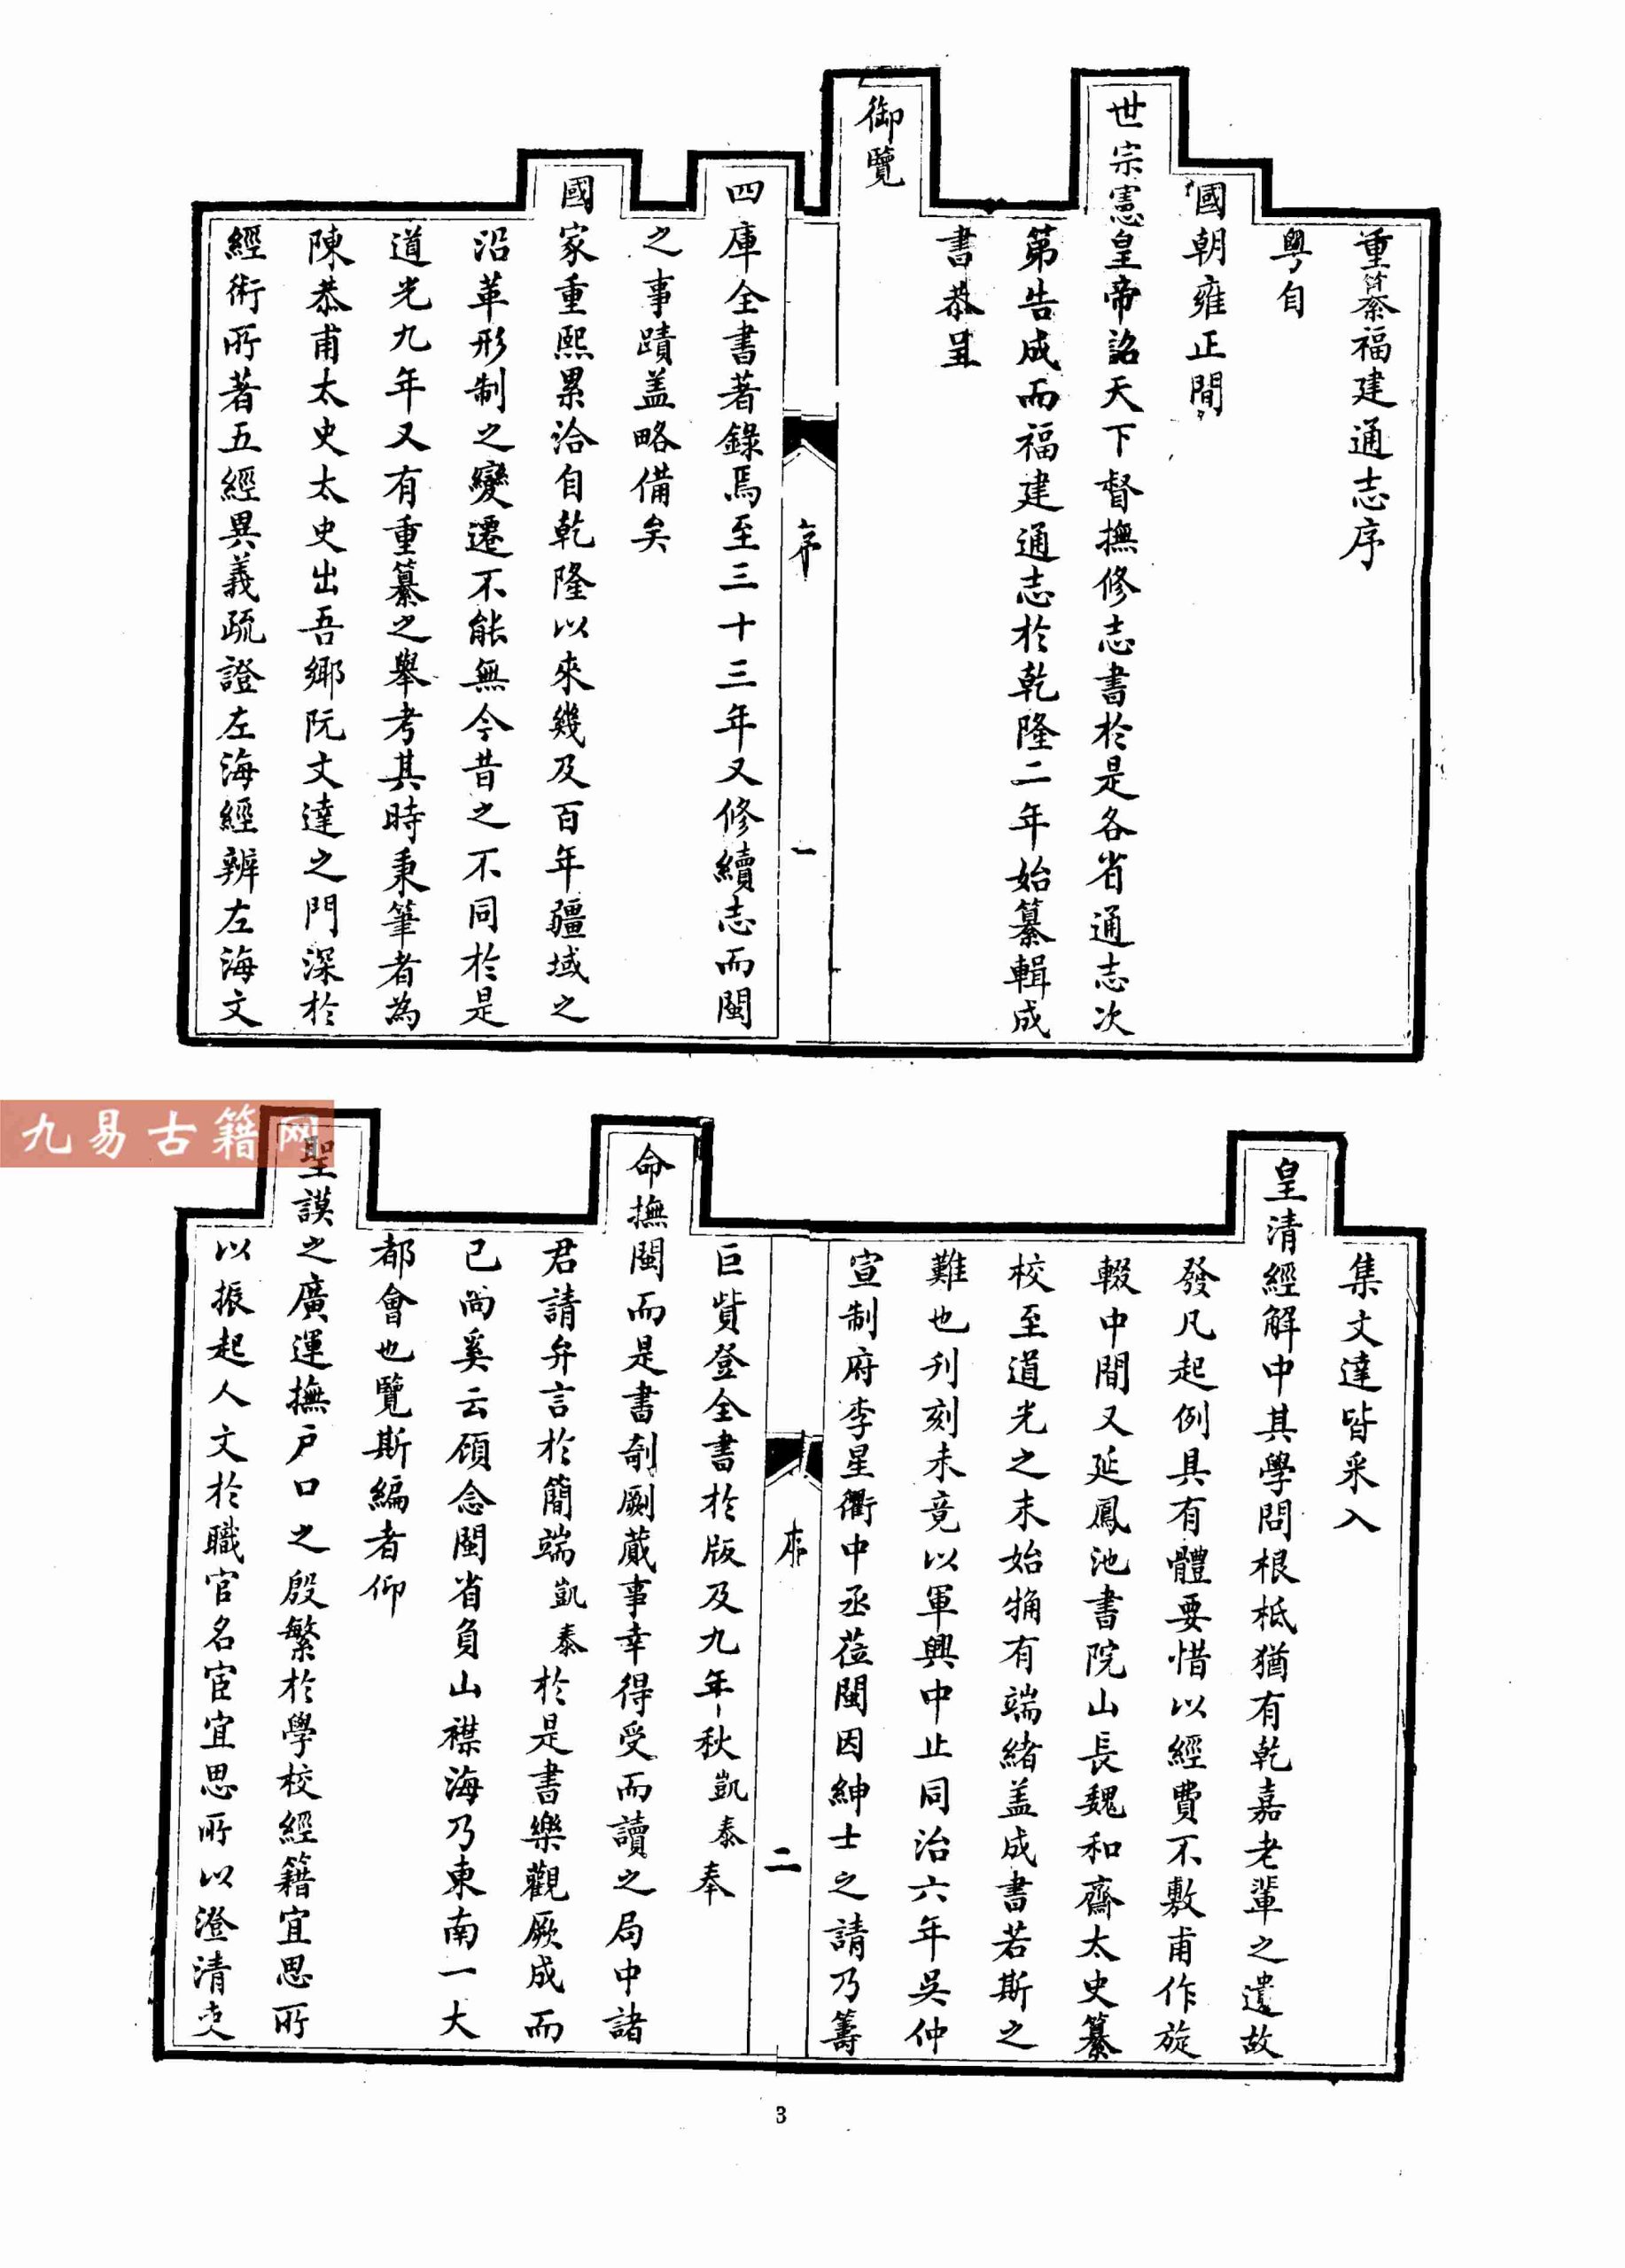 重纂福建通志序
粵自
國朝雍正間
世宗憲皇帝詔天下督撫修志書於是各省通志次
第告成而福建通志於乾隆二年始纂輯成
書恭呈
御覽
序
一
四庫全書著錄焉至三十三年又修續志而閩
之事蹟盖略備矣
國家重熙累洽自乾隆以來幾及百年疆域之
沿革形制之變遷不能無今昔之不同於是
道光九年又有重纂之舉考其時秉筆者為
陳恭甫太史太史出吾鄉阮文達之門深於
經術所著五經異義疏證左海經辨左海文
集文達皆采入
皇清經解中其學問根柢猶有乾嘉老輩之遺故
發凡起例具有體要惜以經費不敷甫作旋
輟中間又延鳳池書院山長魏和齋太史纂
校至道光之末始觕有端緒盖成書若斯之
難也刊刻未竟以軍興中止同治六年吳仲
宣制府李星衢中丞莅閩因紳士之請乃籌
序
二
巨貲登全書於版及九年秋凱泰奉
命撫閩而是書剞劂蕆事幸得受而讀之局中諸
君請弁言於簡端凱泰於是書樂觀厥成而
已尚奚云頋念閩省負山襟海乃東南一大
都會也覽斯編者仰
聖謨之廣運撫户口之殷繁於學校經籍宜思所
以振起人文於職官名宦宜思所以澄清吏
九易古籍网
3